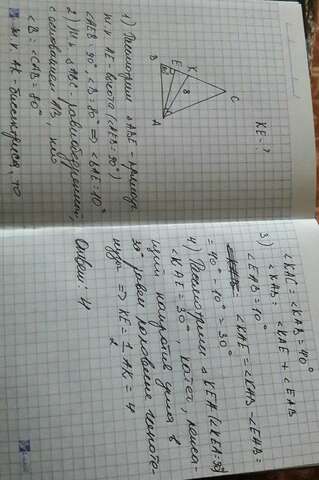 KE - ?
B
E
K
8
C
A
1) Рассмотрим △ABE - прямоуг.
т.к AE - высота (∠AEB = 90°)
∠AEB = 90°, ∠B = 80° ⇒ ∠BAE = 10°
2) Т.к △ABC равнобедренный,
с основанием AB, то
∠B = ∠CAB = 80°
Т.к AK биссектриса, то
∠KAC = ∠KAB = 40°
3) ∠KAB = ∠KAE + ∠EAB
∠EAB = 10°
∠KAE = ∠KAB - ∠EAB =
= 40° - 10° = 30°
4) Рассмотрим △ KEA (∠KEA = 90°)
∠KAE = 30°, катет, лежа-
щий напротив угла в
30° равен половине гипоте-
нузы ⇒ KE = 1/2 AK = 4
Ответ: 4